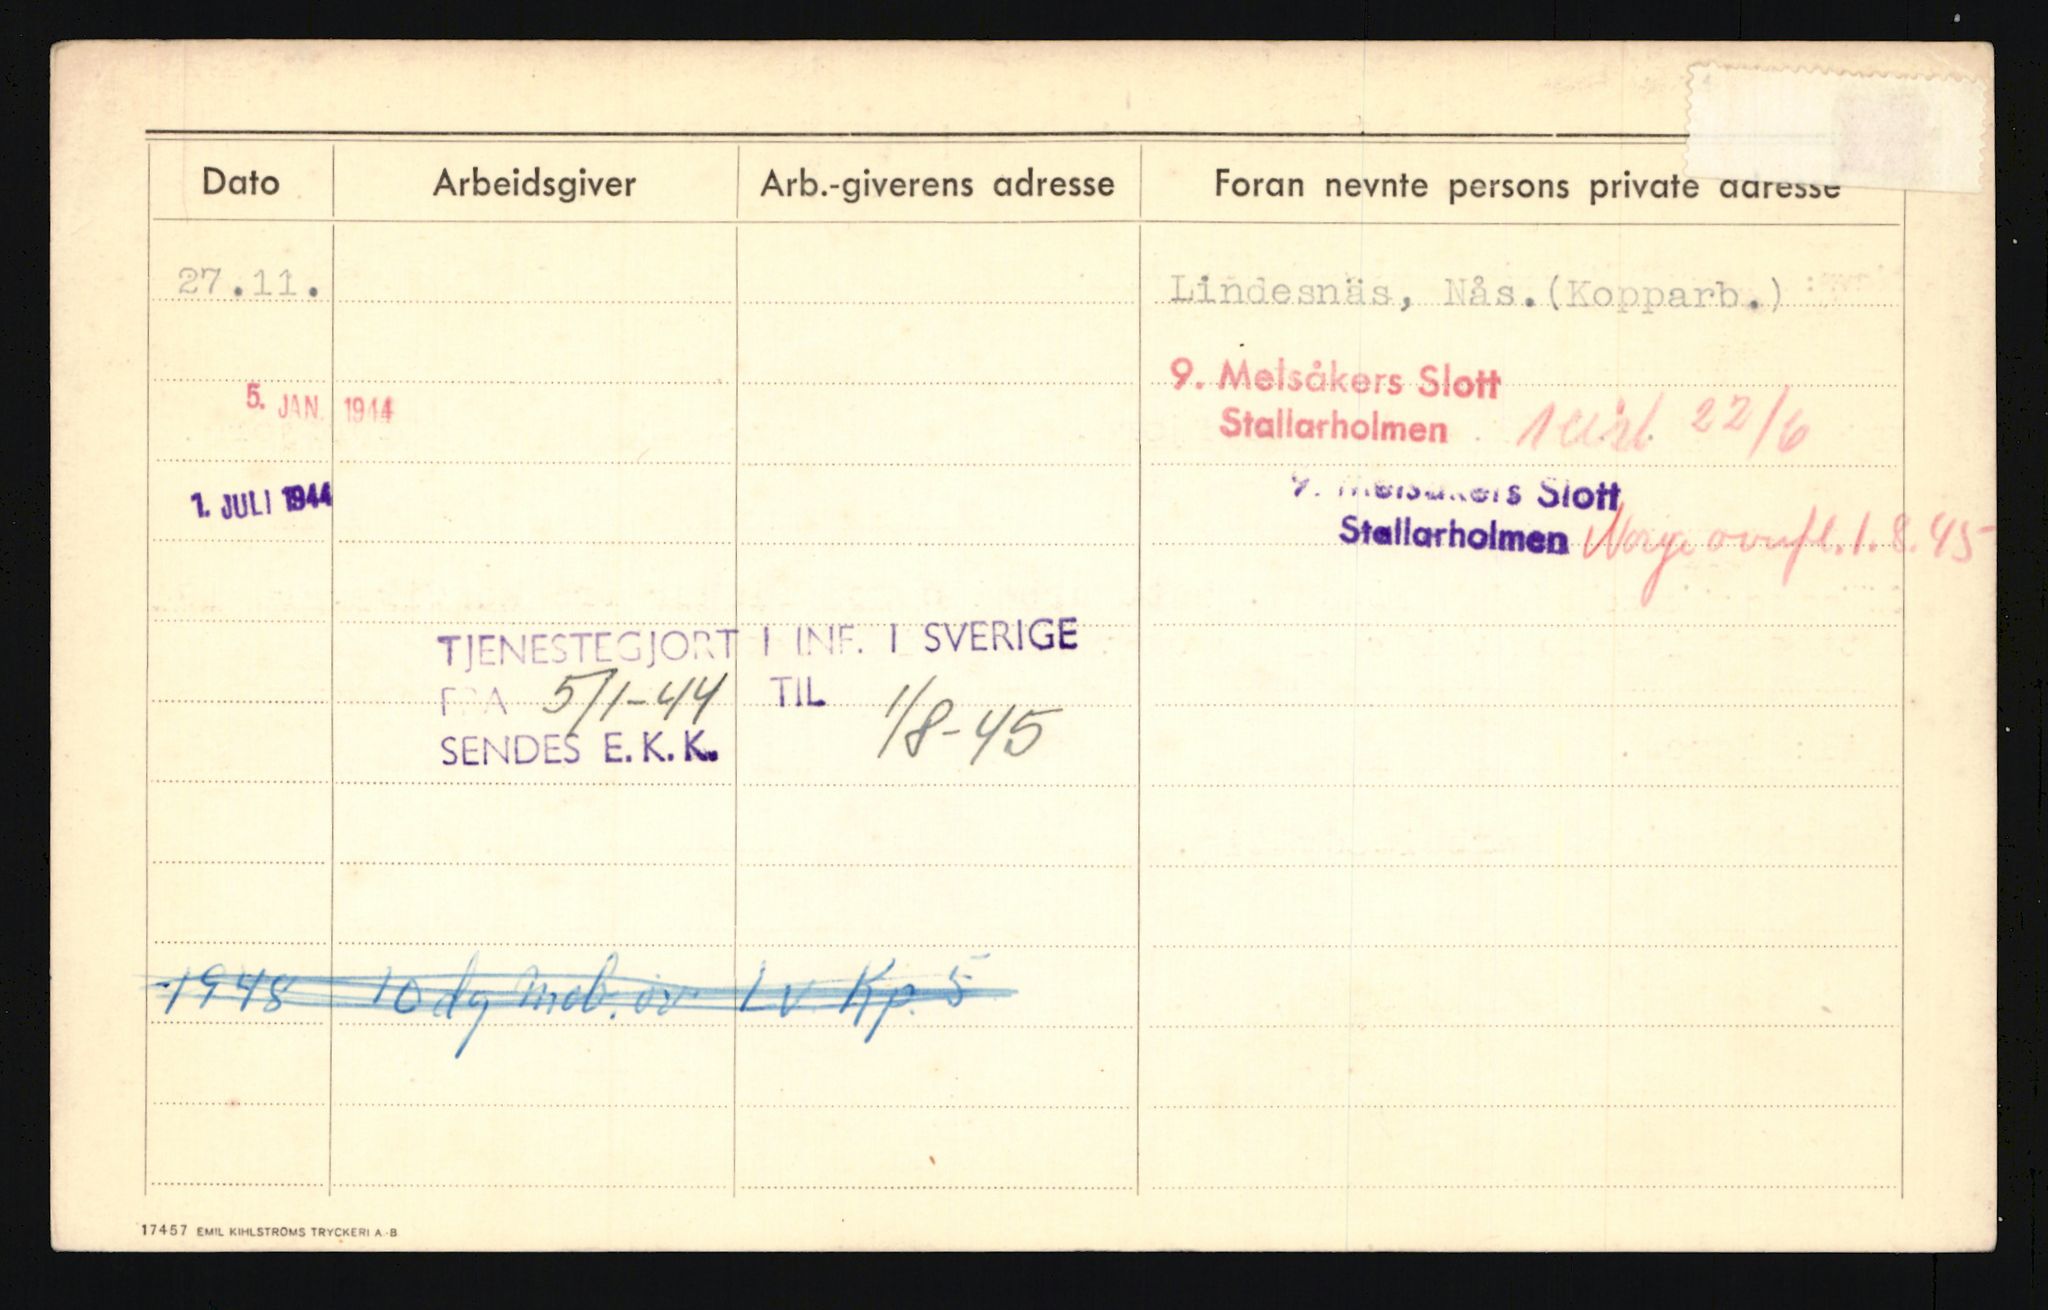 Dato Arbeidsgiver Arb.-giverens adresse Foran nevnte persons private adresse
27.11. Lindesnäs, Nås.(Kopparb.)
5. JAN. 1944 9. Melsåkers Slott
Stallarholmen 22/6
1. JULI 1944 9. Melsåkers Slott
Stallarholmen Norge overfl. 1.8.45
TJENESTEGJORT I INF. I SVERIGE
FRA 5/1-44 TIL 1/8-45
SENDES E.K.K.
1948 10 dg mob. øv Lv Kp. 5
17457 EMIL KIHLSTRÖMS TRYCKERI A.-B